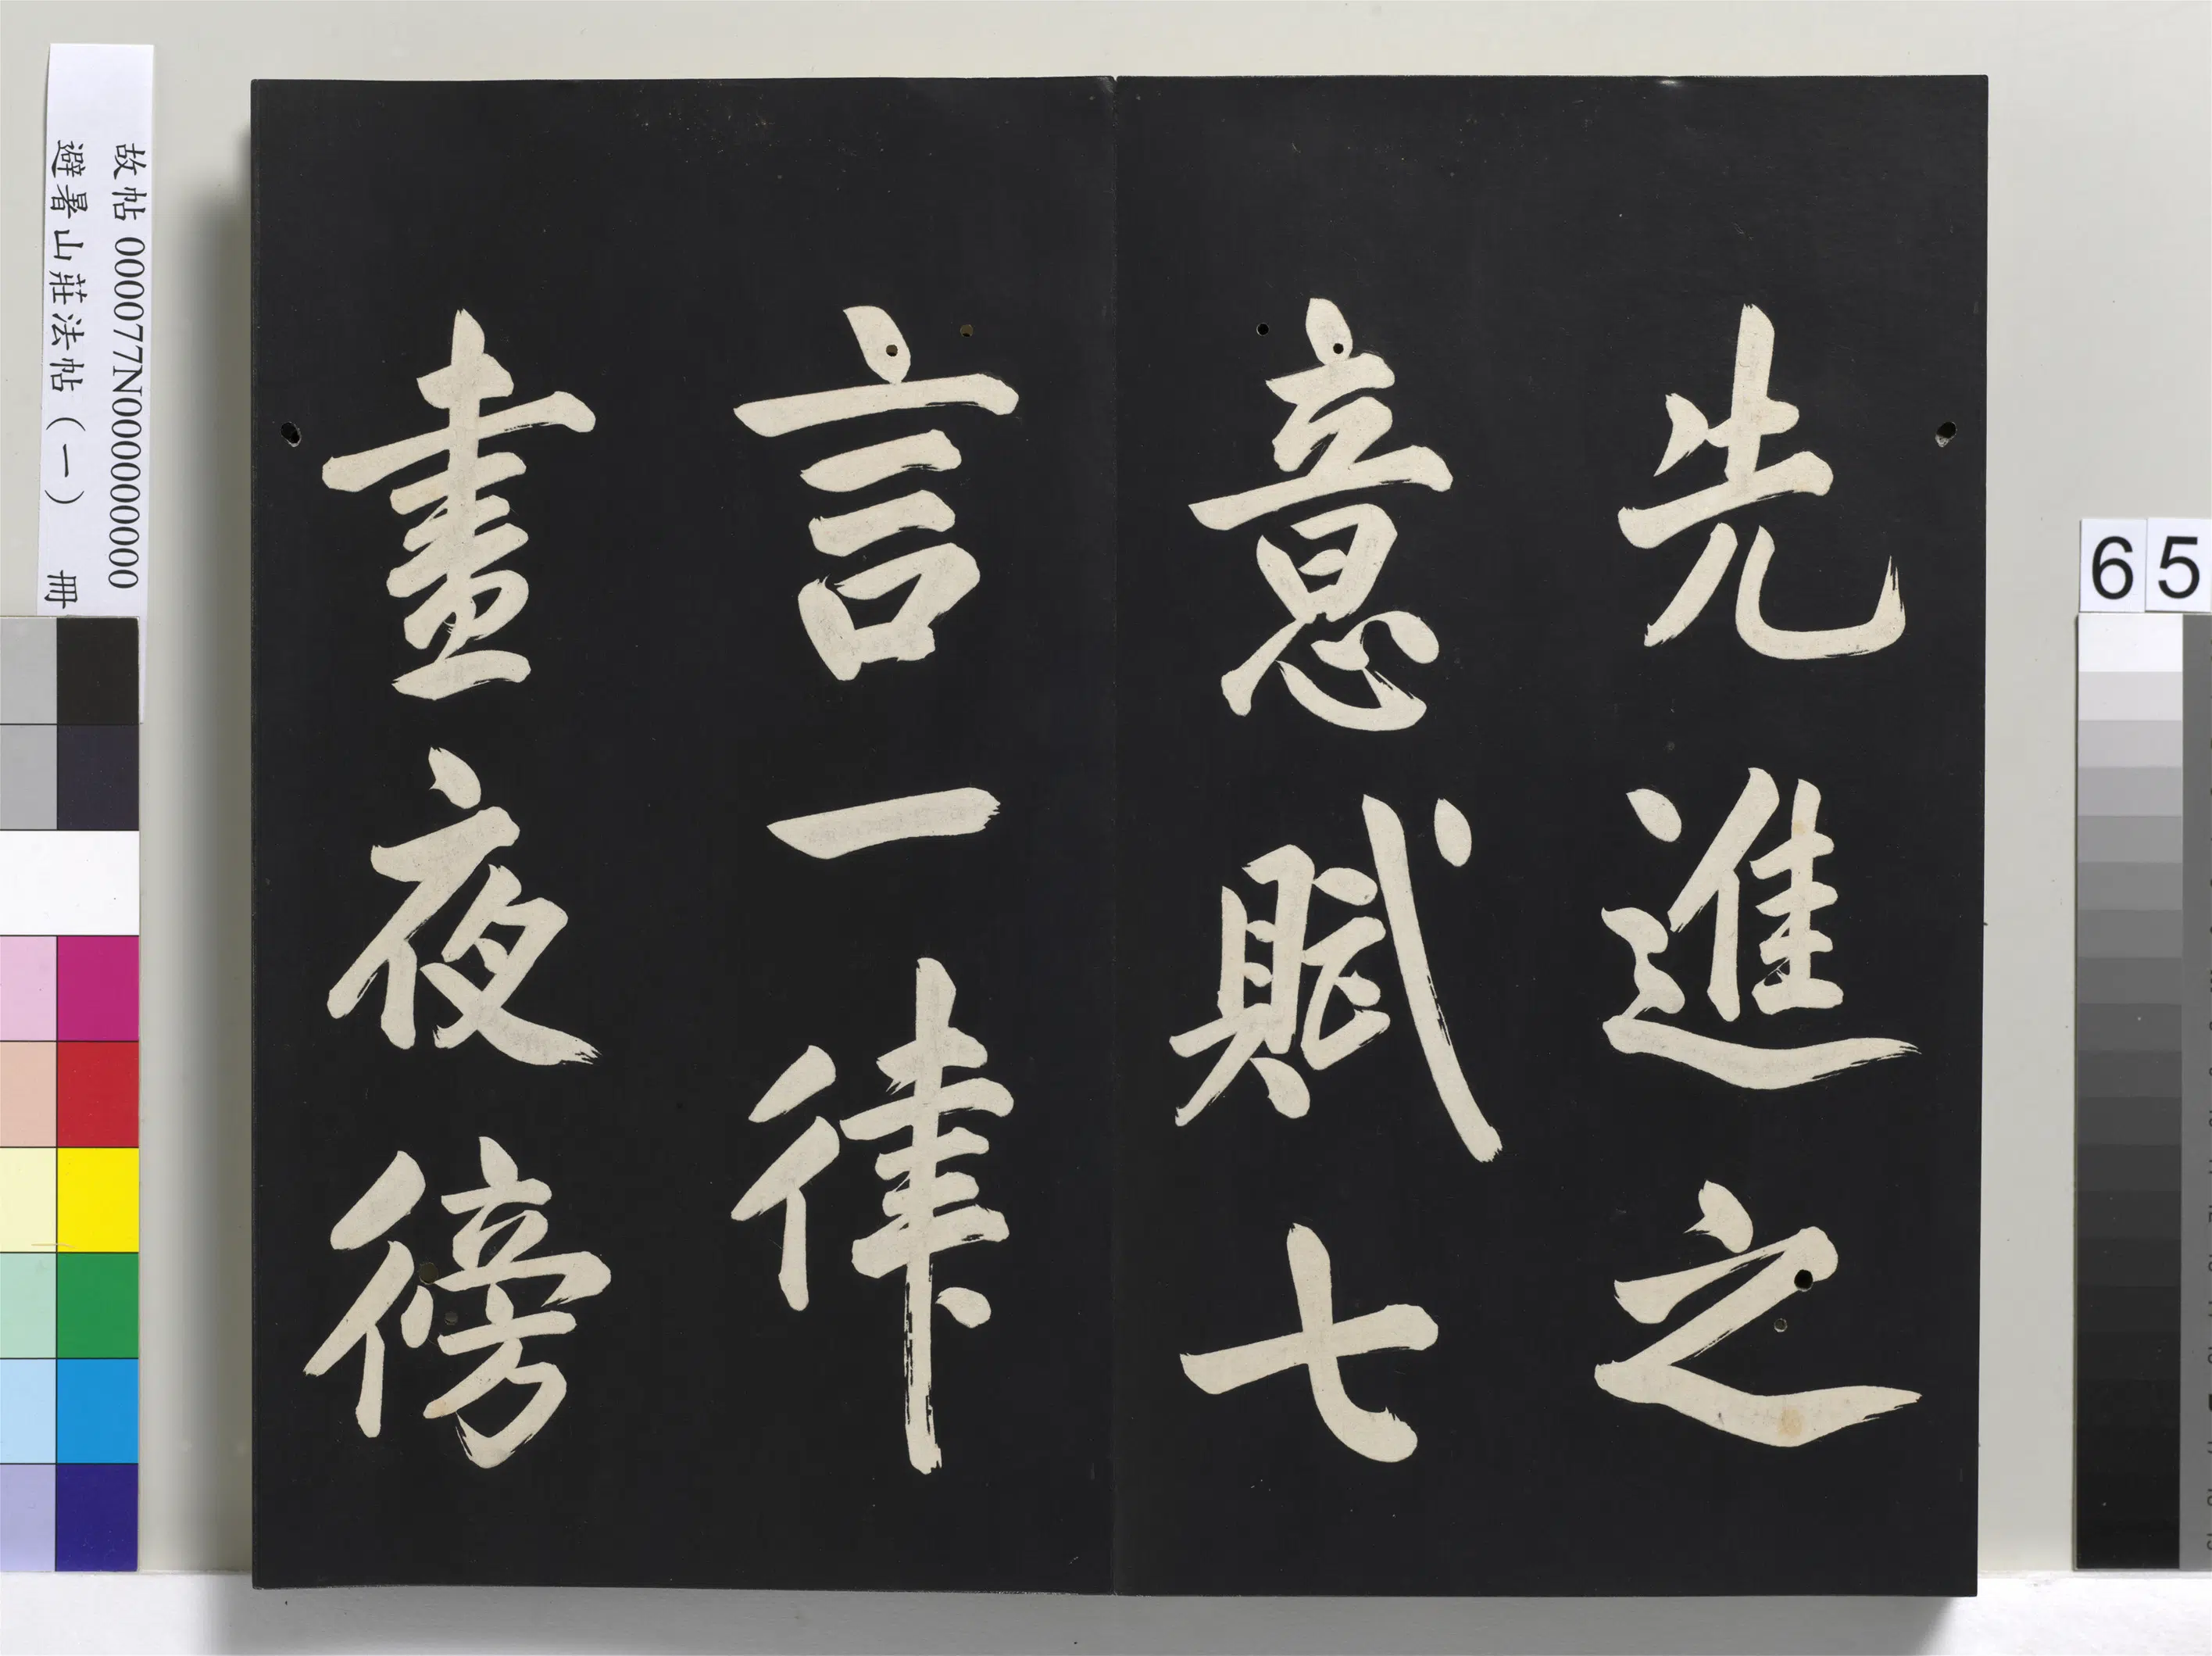 先進之
意賦七
言一律
晝夜徬
故帖 000077N000000000
避暑山莊法帖（一） 冊
65